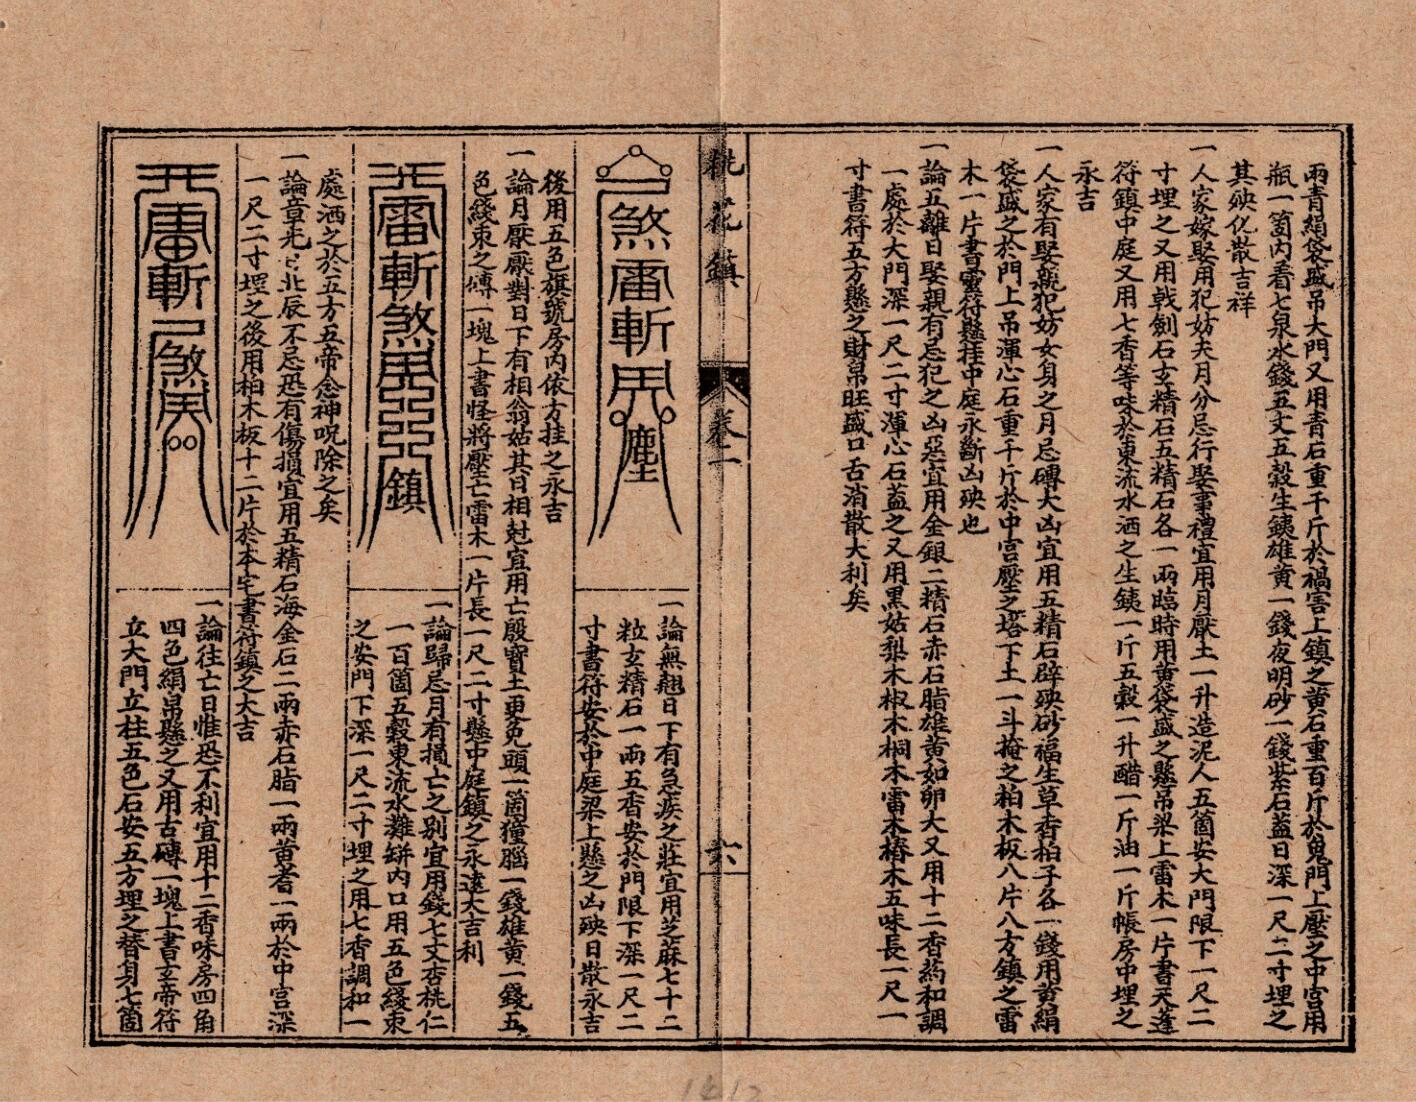 兩青絹袋盛吊大門又用青石重千斤於禍害上鎮之黃石重百斤於鬼門上壓之中宮用
瓶一箇內着七泉水錢五丈五穀生鉄雄黃一錢夜明砂一錢紫石蓋日深一尺二寸埋之
其殃化散吉祥
一人家嫁娶用犯妨夫月分忌行娶事禮宜用月厭土一升造泥人五箇安大門限下一尺二
寸埋之又用戟劍石玄精石五精石各一兩臨時用黃袋盛之懸吊梁上雷木一片書天蓬
符鎮中庭又用七香等味於東流水洒之生鉄一斤五穀一升醋一斤油一斤帳房中埋之
永吉
一人家有娶親犯妨女身之月忌磚大凶宜用五精石辟殃砂福生草杏柏子各一錢用黃絹
袋盛之於門上吊渾心石重千斤於中宮壓之塔下土一斗掩之柏木板八片八方鎮之雷
木一片書靈符懸挂中庭永斷凶殃也
一論五離日娶親有忌犯之凶惡宜用金銀二精石赤石脂雄黃如卵大又用十二香藥和調
一處於大門深一尺二寸渾心石蓋之又用黑姑梨木椒木桐木雷木椿木五味長一尺一
寸書符五方懸之財帛旺盛口舌消散大利矣
桃花鎮
卷二
六
煞雷斬
塵
一論無翹日下有急疾之莊宜用芝蔴七十二
粒玄精石一兩五香安於門限下深一尺二
寸書符安於中庭梁上懸之凶殃日散永吉
後用五色旗號房內依方挂之永吉
一論月厭厭對日下有相翁姑其日相尅宜用亡殷寶土更免頭一箇獐腦一錢雄黃一錢五
色綫束之磚一塊上書怪將壓亡雷木一片長一尺二寸懸中庭鎮之永遠大吉利
雷斬煞
鎮
一論歸忌月有損亡之別宜用錢七文杏桃仁
一百箇五穀東流水難缾內口用五色綫束
之安門下深一尺二寸埋之用七香調和一
處洒之於五方五帝念神呪除之矣
一論章光北辰不忌恐有傷損宜用五精石海金石二兩赤石脂一兩黃耆一兩於中宮深
一尺二寸埋之後用柏木板十二片於本宅書符鎮之大吉
雷斬煞
一論往亡日惟恐不利宜用十二香味房四角
四色絹吊懸之又用古磚一塊上書玄帝符
立大門立柱五色石安五方埋之替身七箇